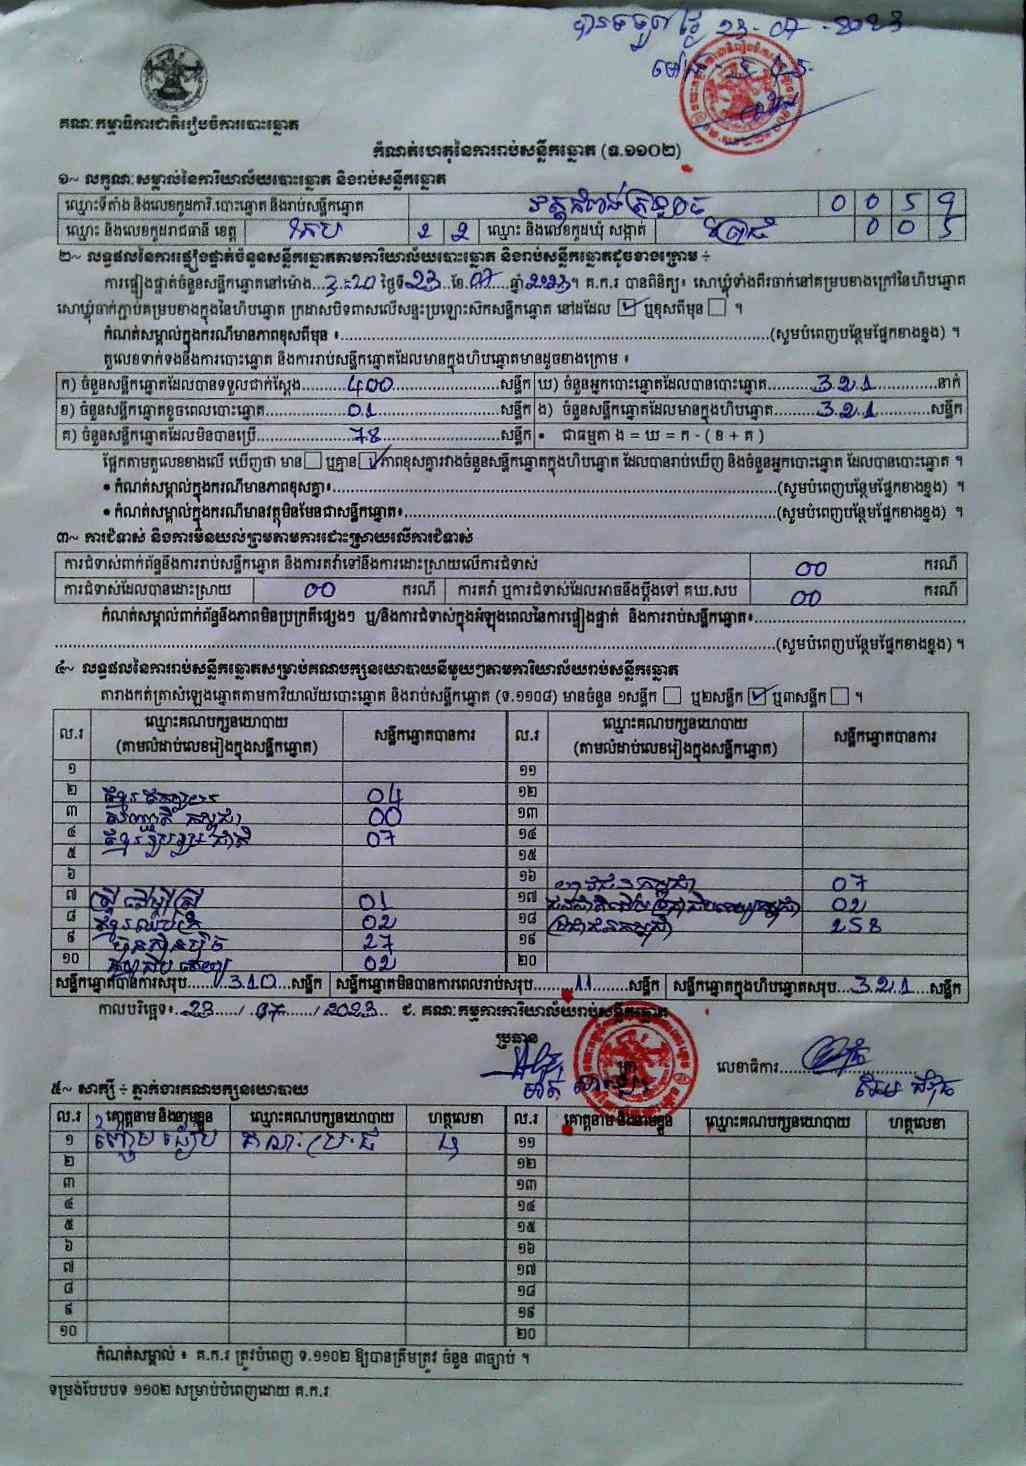 បានទទួលថ្ងៃ 23-07-2023
គណៈកម្មាធិការជាតិរៀបចំការបោះឆ្នោត
កំណត់ហេតុនៃការរាប់សន្លឹកឆ្នោត (ទ.១១០២)
១~ លក្ខណៈសម្គាល់នៃការិយាល័យបោះឆ្នោត និងរាប់សន្លឹកឆ្នោត
ឈ្មោះទីតាំង និងលេខកូដការិ.បោះឆ្នោត និងរាប់សន្លឹកឆ្នោត 0 0 5 9
ឈ្មោះ និងលេខកូដរាជធានី ខេត្ត កែប 2 2 ឈ្មោះ និងលេខកូដឃុំ សង្កាត់ 0 0 5
២~ លទ្ធផលនៃការផ្ទៀងផ្ទាត់ចំនួនសន្លឹកឆ្នោតតាមការិយាល័យបោះឆ្នោត និងរាប់សន្លឹកឆ្នោតដូចខាងក្រោម ÷
ការផ្ទៀងផ្ទាត់ចំនួនសន្លឹកឆ្នោតនៅម៉ោង...3:20 ថ្ងៃទី 23 ..ខែ.07.... ឆ្នាំ 2023។ គ.ក.រ បានពិនិត្យ៖ សោឃ្លុំទាំងពីរចាក់នៅគម្របខាងក្រៅនៃហិបឆ្នោត
សោឃ្លុំចាក់ភ្ជាប់គម្របខាងក្នុងនៃហិបឆ្នោត ក្រដាសបិទពាសលើសន្ទះប្រឡោះសិកសន្លឹកឆ្នោត នៅដដែល ☑ ឬខុសពីមុន ☐ ។
កំណត់សម្គាល់ក្នុងករណីមានភាពខុសពីមុន ៖......(សូមបំពេញបន្ថែមផ្នែកខាងខ្នង) ។
តួលេខទាក់ទងនឹងការបោះឆ្នោត និងការរាប់សន្លឹកឆ្នោតដែលមានក្នុងហិបឆ្នោតមានដូចខាងក្រោម ៖
ក) ចំនួនសន្លឹកឆ្នោតដែលបានទទួលជាក់ស្តែង......400......សន្លឹក ឃ) ចំនួនអ្នកបោះឆ្នោតដែលបានបោះឆ្នោត......321......នាក់
ខ) ចំនួនសន្លឹកឆ្នោតខូចពេលបោះឆ្នោត......01......សន្លឹក ង) ចំនួនសន្លឹកឆ្នោតដែលមានក្នុងហិបឆ្នោត......321......សន្លឹក
គ) ចំនួនសន្លឹកឆ្នោតដែលមិនបានប្រើ......78......សន្លឹក • ជាធម្មតា ង = ឃ = ក - ( ខ + គ )
ផ្អែកតាមតួលេខខាងលើ ឃើញថា មាន ☐ ឬគ្មាន ☑ ភាពខុសគ្នារវាងចំនួនសន្លឹកឆ្នោតក្នុងហិបឆ្នោត ដែលបានរាប់ឃើញ និងចំនួនអ្នកបោះឆ្នោត ដែលបានបោះឆ្នោត ។
• កំណត់សម្គាល់ក្នុងករណីមានភាពខុសគ្នា៖......(សូមបំពេញបន្ថែមផ្នែកខាងខ្នង) ។
• កំណត់សម្គាល់ក្នុងករណីមានវត្ថុមិនមែនជាសន្លឹកឆ្នោត៖......(សូមបំពេញបន្ថែមផ្នែកខាងខ្នង) ។
៣~ ការជំទាស់ និងការមិនយល់ព្រមតាមការដោះស្រាយលើការជំទាស់
ការជំទាស់ពាក់ព័ន្ធនឹងការរាប់សន្លឹកឆ្នោត និងការតវ៉ាទៅនឹងការដោះស្រាយលើការជំទាស់ 00 ករណី
ការជំទាស់ដែលបានដោះស្រាយ 00 ករណី ការតវ៉ា ឬការជំទាស់ដែលអាចនឹងប្តឹងទៅ គឃ.សប 00 ករណី
កំណត់សម្គាល់ពាក់ព័ន្ធនឹងភាពមិនប្រក្រតីផ្សេងៗ ឬ/និងការជំទាស់ក្នុងអំឡុងពេលនៃការផ្ទៀងផ្ទាត់ និងការរាប់សន្លឹកឆ្នោត៖......
......(សូមបំពេញបន្ថែមផ្នែកខាងខ្នង) ។
៤~ លទ្ធផលនៃការរាប់សន្លឹកឆ្នោតសម្រាប់គណបក្សនយោបាយនីមួយៗតាមការិយាល័យរាប់សន្លឹកឆ្នោត
តារាងកត់ត្រាសំឡេងឆ្នោតតាមការិយាល័យបោះឆ្នោត និងរាប់សន្លឹកឆ្នោត (ទ.១១០៨) មានចំនួន ១សន្លឹក ☐ ឬ២សន្លឹក ☑ ឬ៣សន្លឹក ☐ ។
ល.រ ឈ្មោះគណបក្សនយោបាយ (តាមលំដាប់លេខរៀងក្នុងសន្លឹកឆ្នោត) សន្លឹកឆ្នោតបានការ ល.រ ឈ្មោះគណបក្សនយោបាយ (តាមលំដាប់លេខរៀងក្នុងសន្លឹកឆ្នោត) សន្លឹកឆ្នោតបានការ
១ ១១
២ 04 ១២
៣ 00 ១៣
៤ ខ្មែររួបរួមជាតិ 07 ១៤
៥ ១៥
៦ ១៦ យុវជនកម្ពុជា 07
៧ ស្ត្រីដើម្បីស្ត្រី 01 ១៧ 02
៨ 02 ១៨ ប្រជាជនកម្ពុជា 258
៩ ហ៊្វុនស៊ិនប៉ិច 27 ១៩
១០ 02 ២០
សន្លឹកឆ្នោតបានការសរុប......310...សន្លឹក សន្លឹកឆ្នោតមិនបានការពេលរាប់សរុប......11......សន្លឹក សន្លឹកឆ្នោតក្នុងហិបឆ្នោតសរុប...321....សន្លឹក
កាលបរិច្ឆេទ៖..23....../..07....../2023... ជ. គណៈកម្មការការិយាល័យរាប់សន្លឹកឆ្នោត
ប្រធាន
លេខាធិការ......
៥~ សាក្សី ÷ ភ្នាក់ងារគណបក្សនយោបាយ
ល.រ គោត្តនាម និងនាមខ្លួន ឈ្មោះគណបក្សនយោបាយ ហត្ថលេខា ល.រ គោត្តនាម និងនាមខ្លួន ឈ្មោះគណបក្សនយោបាយ ហត្ថលេខា
១ គណៈប្រ.ជ ១១
២ ១២
៣ ១៣
៤ ១៤
៥ ១៥
៦ ១៦
៧ ១៧
៨ ១៨
៩ ១៩
១០ ២០
កំណត់សម្គាល់ ៖ គ.ក.រ ត្រូវបំពេញ ទ.១១០២ ឱ្យបានត្រឹមត្រូវ ចំនួន ៣ច្បាប់ ។
ទម្រង់បែបបទ ១១០២ សម្រាប់បំពេញដោយ គ.ក.រ